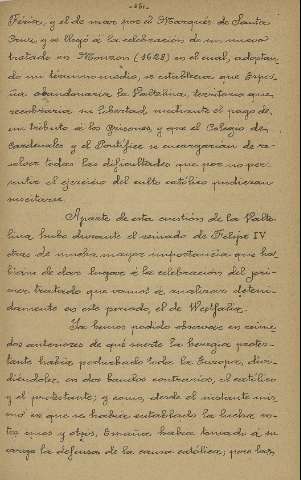 -151-
Feria, y el de mar por el Marqués de Santa
Cruz, y se llegó á la celebración de un nuevo
tratado en Monzón (1626) en el cual, adoptan-
do un término medio, se establecía que Espa-
ña abandonaría la Valtelina, territorio que
recobraría su libertad mediante el pago de
un tributo á los Grisones, y que el Colegio de
Cardenales y el Pontífice se encargarían de re-
solver todas las dificultades que por no per-
mitir el ejercicio del culto católico pudieran
suscitarse.
Aparte de esta cuestión de la Valte-
lina hubo durante el reinado de Felipe IV
otras de mucha mayor importancia que ha-
bían de dar lugar á la celebración del pri-
mer tratado que vamos á analizar deteni-
damente en este periodo, el de Westfalia.
Ya hemos podido observar en reina-
dos anteriores de qué suerte la heregia protes-
tante había perturbado toda la Europa, divi-
diéndola en dos bandos contrarios, el católico
y el protestante; y como, desde el instante mis-
mo en que se había entablado la lucha en-
tre unos y otros, España había tomado á su
cargo la defensa de la causa católica; pero las